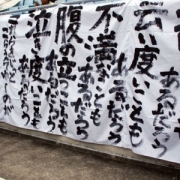 あるだろう
云い度いことも
あるだろう
不満なことも
あるだろう
腹の立つことも
あるだろう
泣き度いことも
あるだろう